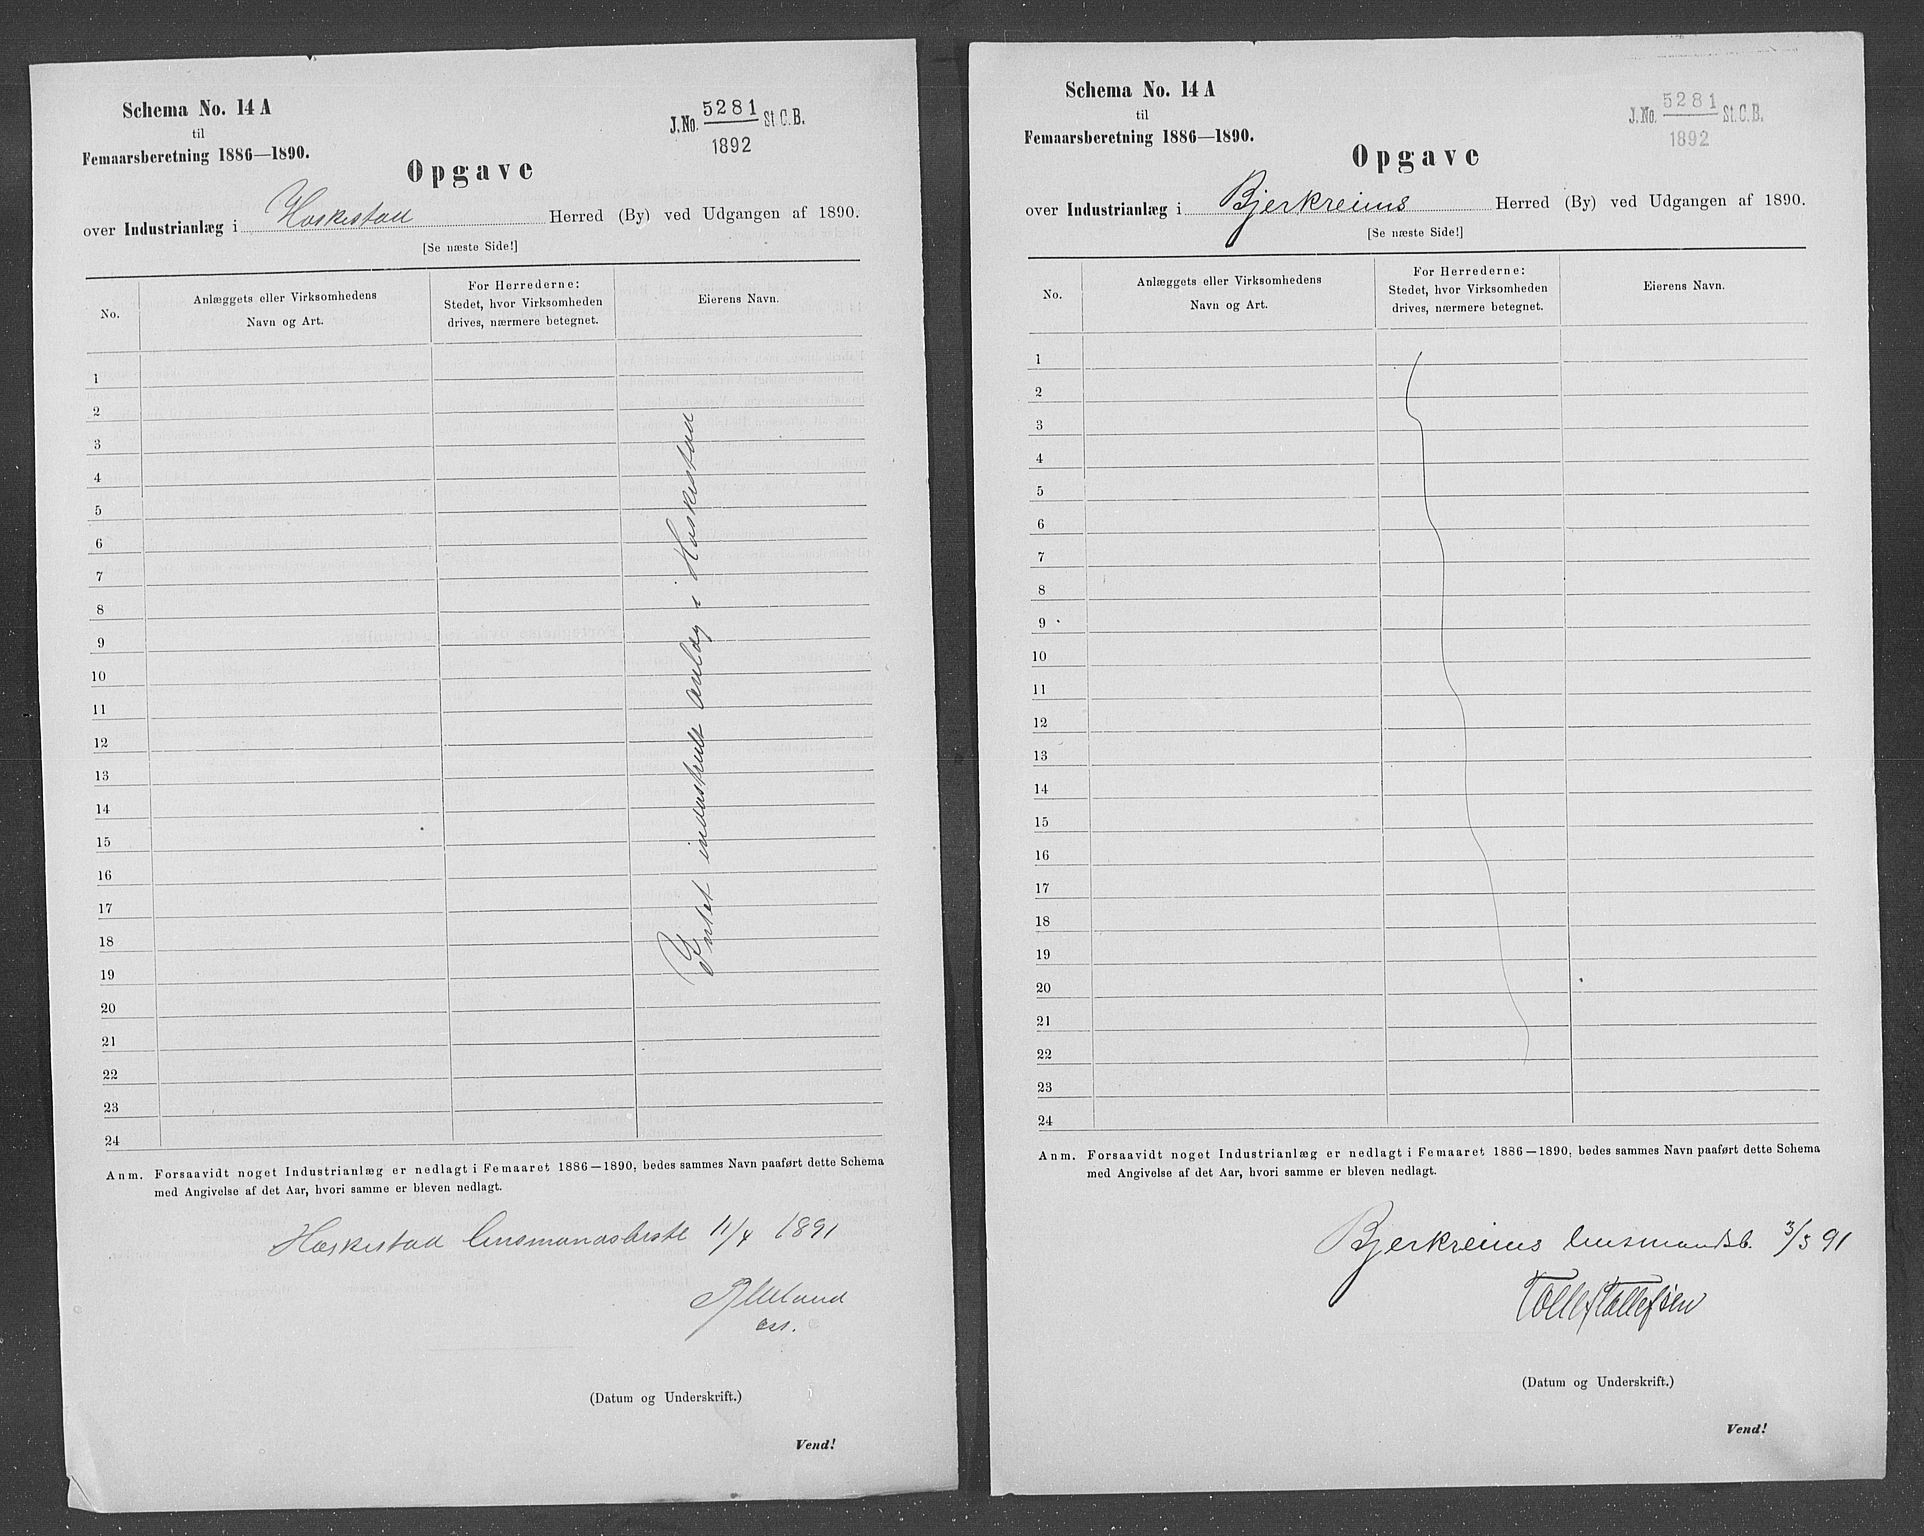 Schema No. 14 A
til
Femaarsberetning 1886—1890.
J. No. 5281 St. C. B.
1892
Opgave
over Industrianlæg i Heskestad Herred (By) ved Udgangen af 1890.
[Se næste Side!]
No.
Anlæggets eller Virksomhedens
Navn og Art.
For Herrederne:
Stedet, hvor Virksomheden
drives, nærmere betegnet.
Eierens Navn.
1
2
3
4
5
6
7
8
9
10
11
12
13
14
15
16
17
18
19
20
21
22
23
24
Intet industrielt anlæg i Heskestad
Anm. Forsaavidt noget Industrianlæg er nedlagt i Femaaret 1886—1890, bedes sammes Navn paaført dette Schema
med Angivelse af det Aar, hvori samme er bleven nedlagt.
Heskestad lensmandsbestl 11/4 1891
ass.
(Datum og Underskrift.)
Vend!
Schema No. 14 A
til
Femaarsberetning 1886—1890.
J. No. 5281 St. C. B.
1892
Opgave
over Industrianlæg i Bjerkreims Herred (By) ved Udgangen af 1890.
[Se næste Side!]
No.
Anlæggets eller Virksomhedens
Navn og Art.
For Herrederne:
Stedet, hvor Virksomheden
drives, nærmere betegnet.
Eierens Navn.
1
2
3
4
5
6
7
8
9
10
11
12
13
14
15
16
17
18
19
20
21
22
23
24
Anm. Forsaavidt noget Industrianlæg er nedlagt i Femaaret 1886—1890, bedes sammes Navn paaført dette Schema
med Angivelse af det Aar, hvori samme er bleven nedlagt.
Bjerkreims lensmandsb. 3/3 91
Tollef Tollefsen
(Datum og Underskrift.)
Vend!